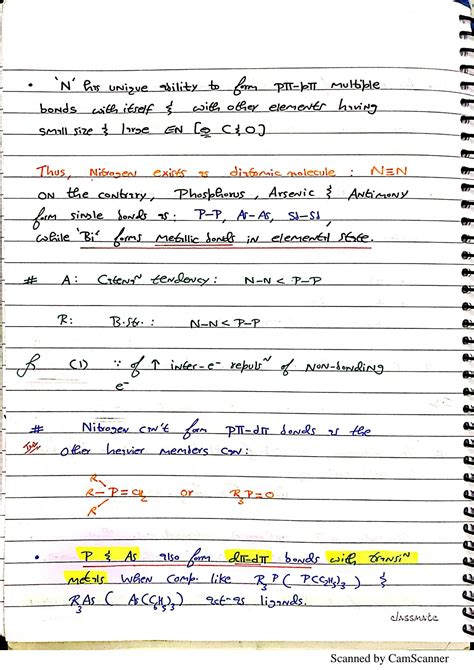 • 'N' has unique ability to form pπ-pπ multiple
bonds with itself & with other elements having
small size & large EN [eg C & O]
Thus, Nitrogen exists as diatomic molecule : N≡N
on the contrary, Phosphorus, Arsenic & Antimony
form single bonds as: P-P, As-As, Sb-Sb,
while 'Bi' forms metallic bonds in elemental state.
# A: Catenaⁿ tendency: N-N < P-P
R: B.str. : N-N < P-P
(1) ∵ of ↑ inter-e⁻ repulsⁿ of non-bonding
e⁻
# Nitrogen can't form pπ-dπ bonds as the
other heavier members can:
R
R-P=CH₂ or R₃P=O
R
• P & As also form dπ-dπ bonds with transiⁿ
metals when comp. like R₃P ( P(C₂H₅)₃ ) &
R₃As ( As(C₆H₅)₃ ) act-as ligands.
classmate
Scanned by CamScanner